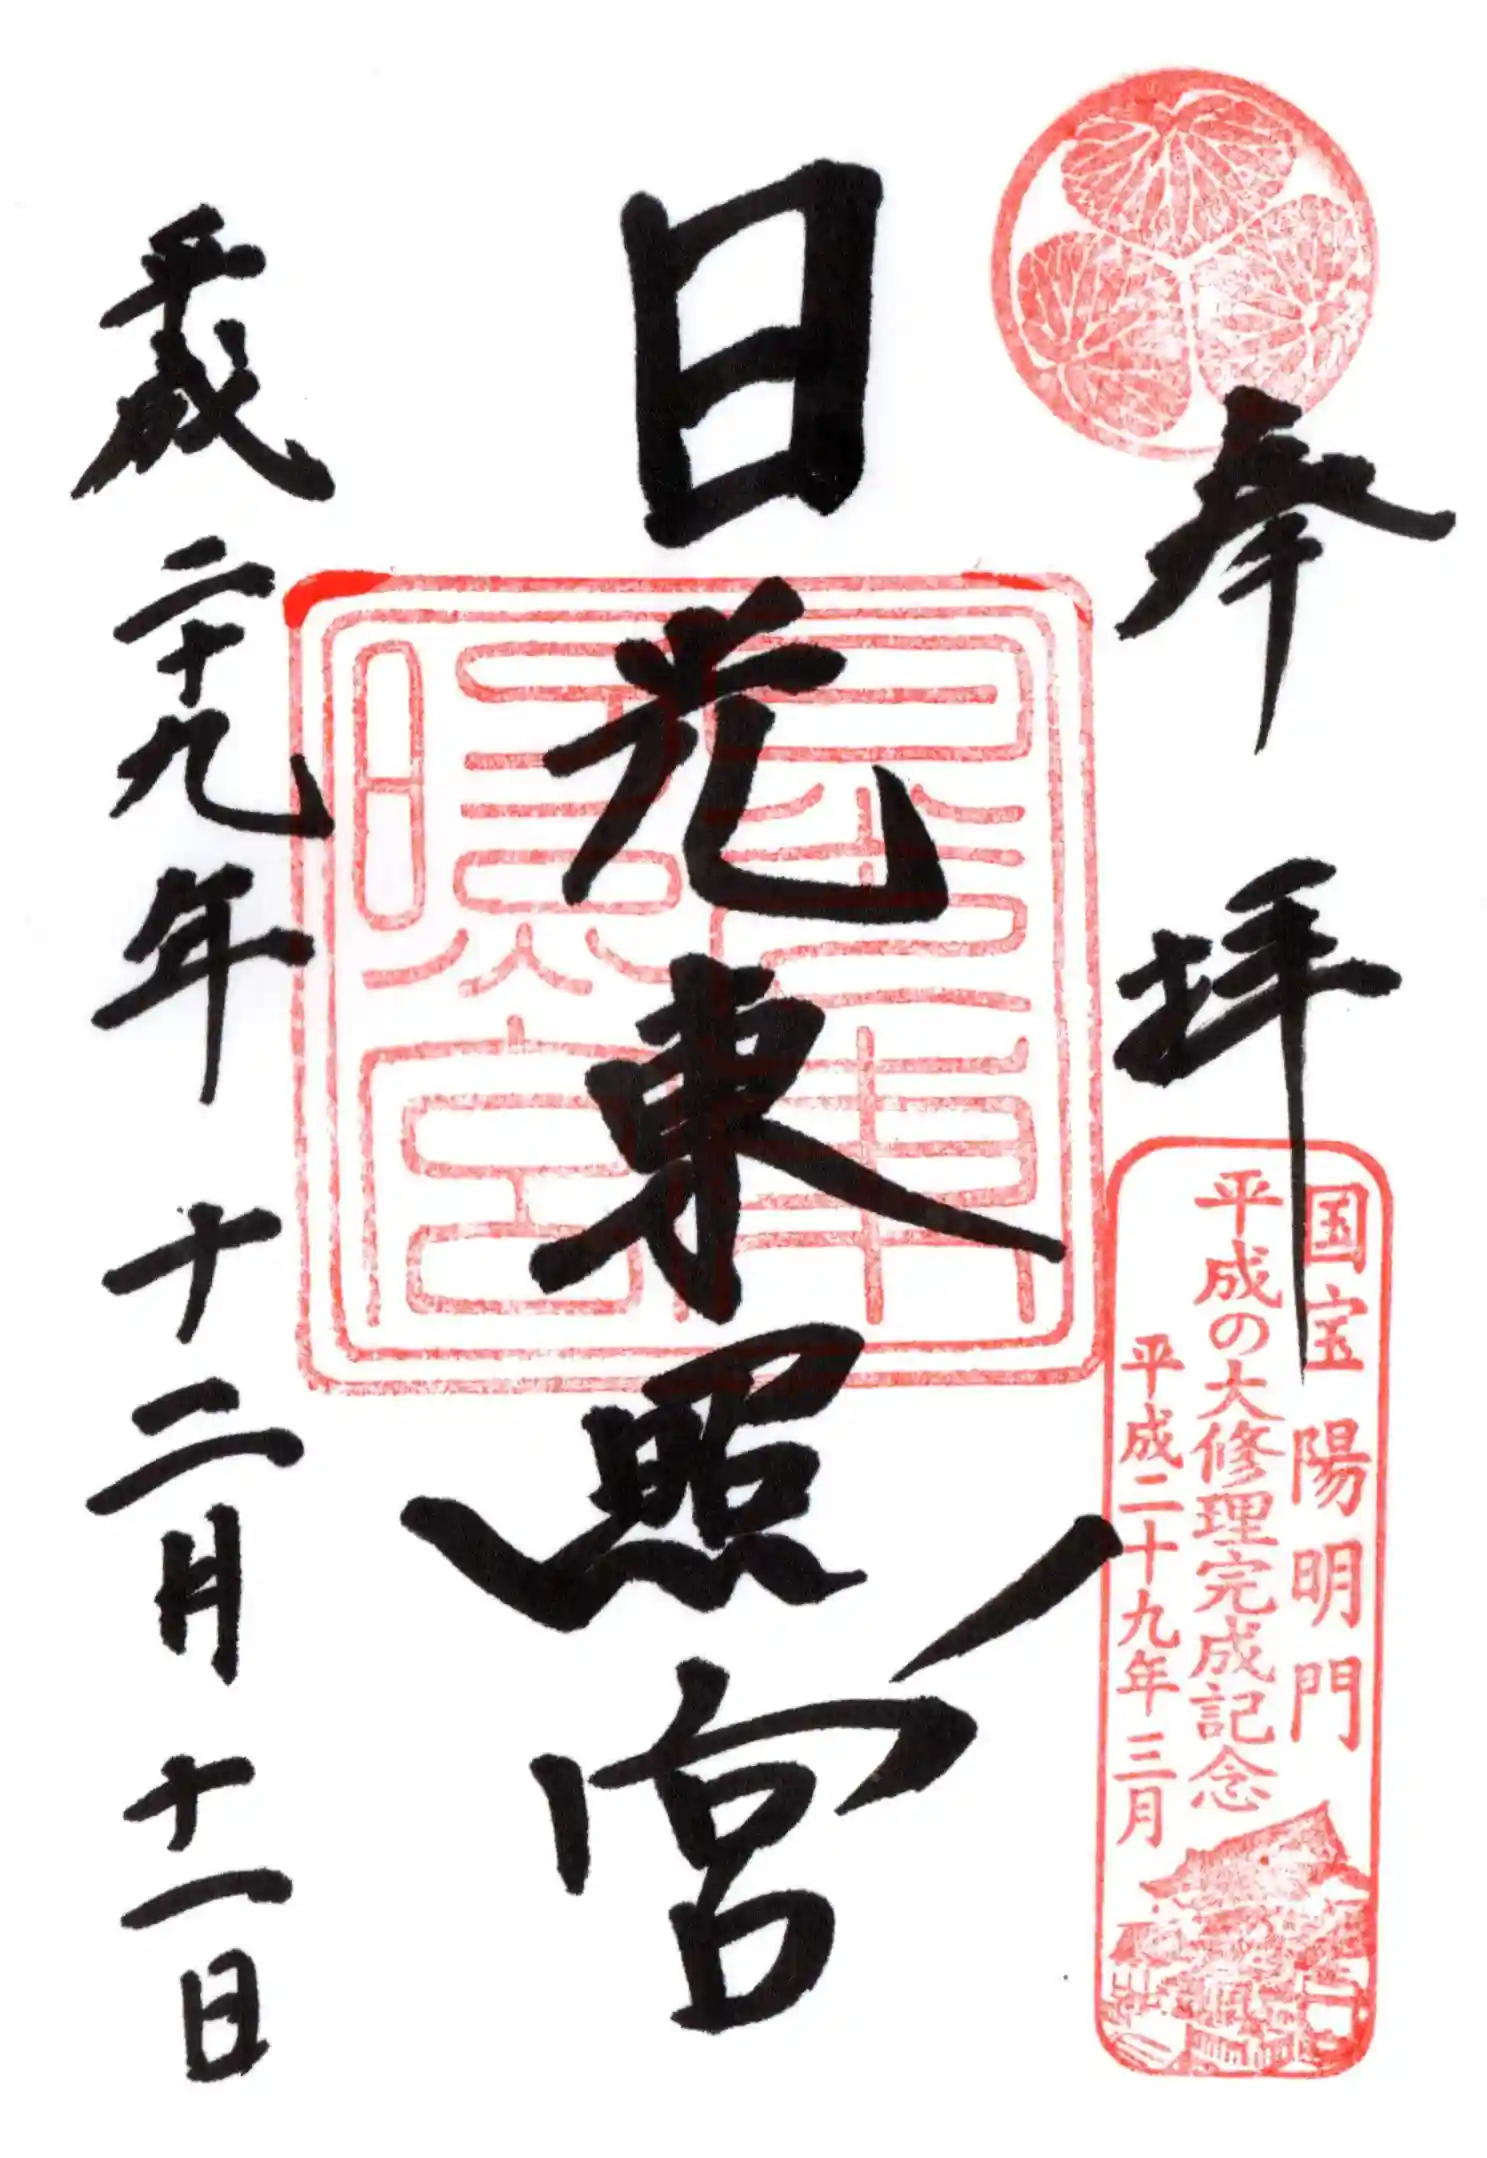 奉拝
国宝 陽明門
平成の大修理完成記念
平成二十九年三月
日光東照宮
日光東照宮
平成二十九年十二月十一日